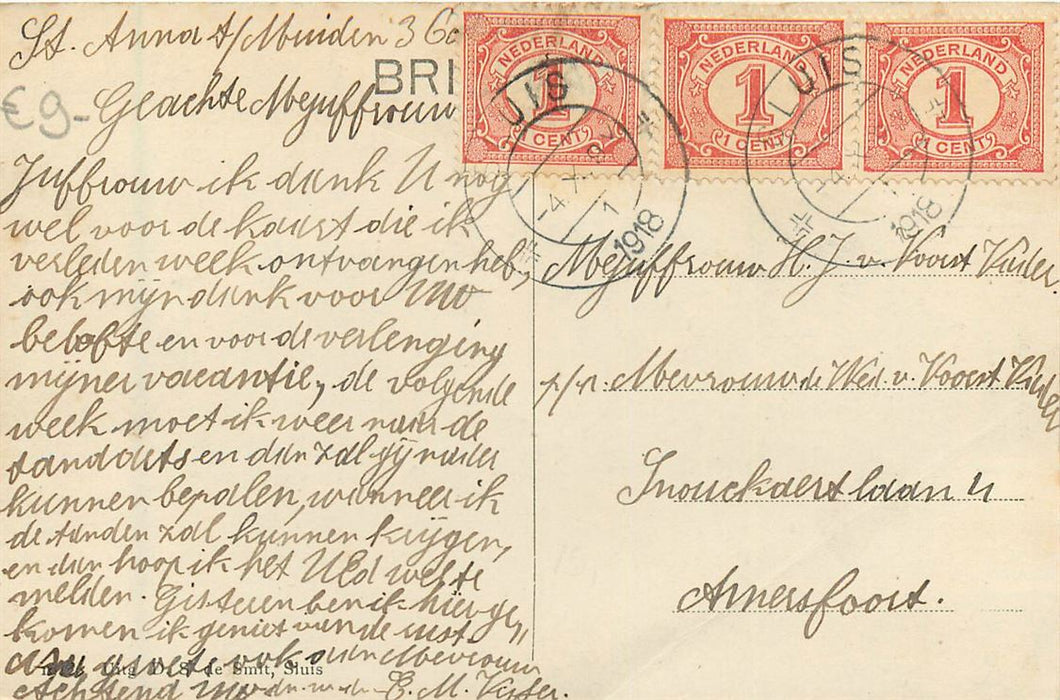 St. Anna t/Muiden 3
BRI
€ 9-
Geachte Mejuffrouw
Juffrouw ik dank U nog
wel voor de kaart die ik
verleden week ontvangen heb,
ook mijn dank voor Uw
belofte en voor de verlenging
mijner vacantie, de volgende
week moet ik weer naar de
tandarts en dan zal gij nader
kunnen bepalen, wanneer ik
de tanden zal kunnen krijgen,
en dan hoop ik het UEd wel te
melden. Gisteren ben ik hier ge,,
komen ik geniet van de rust.
groete ook aan Mevrouw
Achtend Uw dn. E. M.
Uitg. D. S. de Smit, Sluis
NEDERLAND
1
1 CENT
NEDERLAND
1
1 CENT
NEDERLAND
1
1 CENT
UIS
-4.X
1
1918
LUIS
-4.X
1918
Mejuffrouw H. J. v. Voorst Vader.
p/a. Mevrouw de Wed. v. Voorst Vader
Snouckaertlaan 11
Amersfoort.